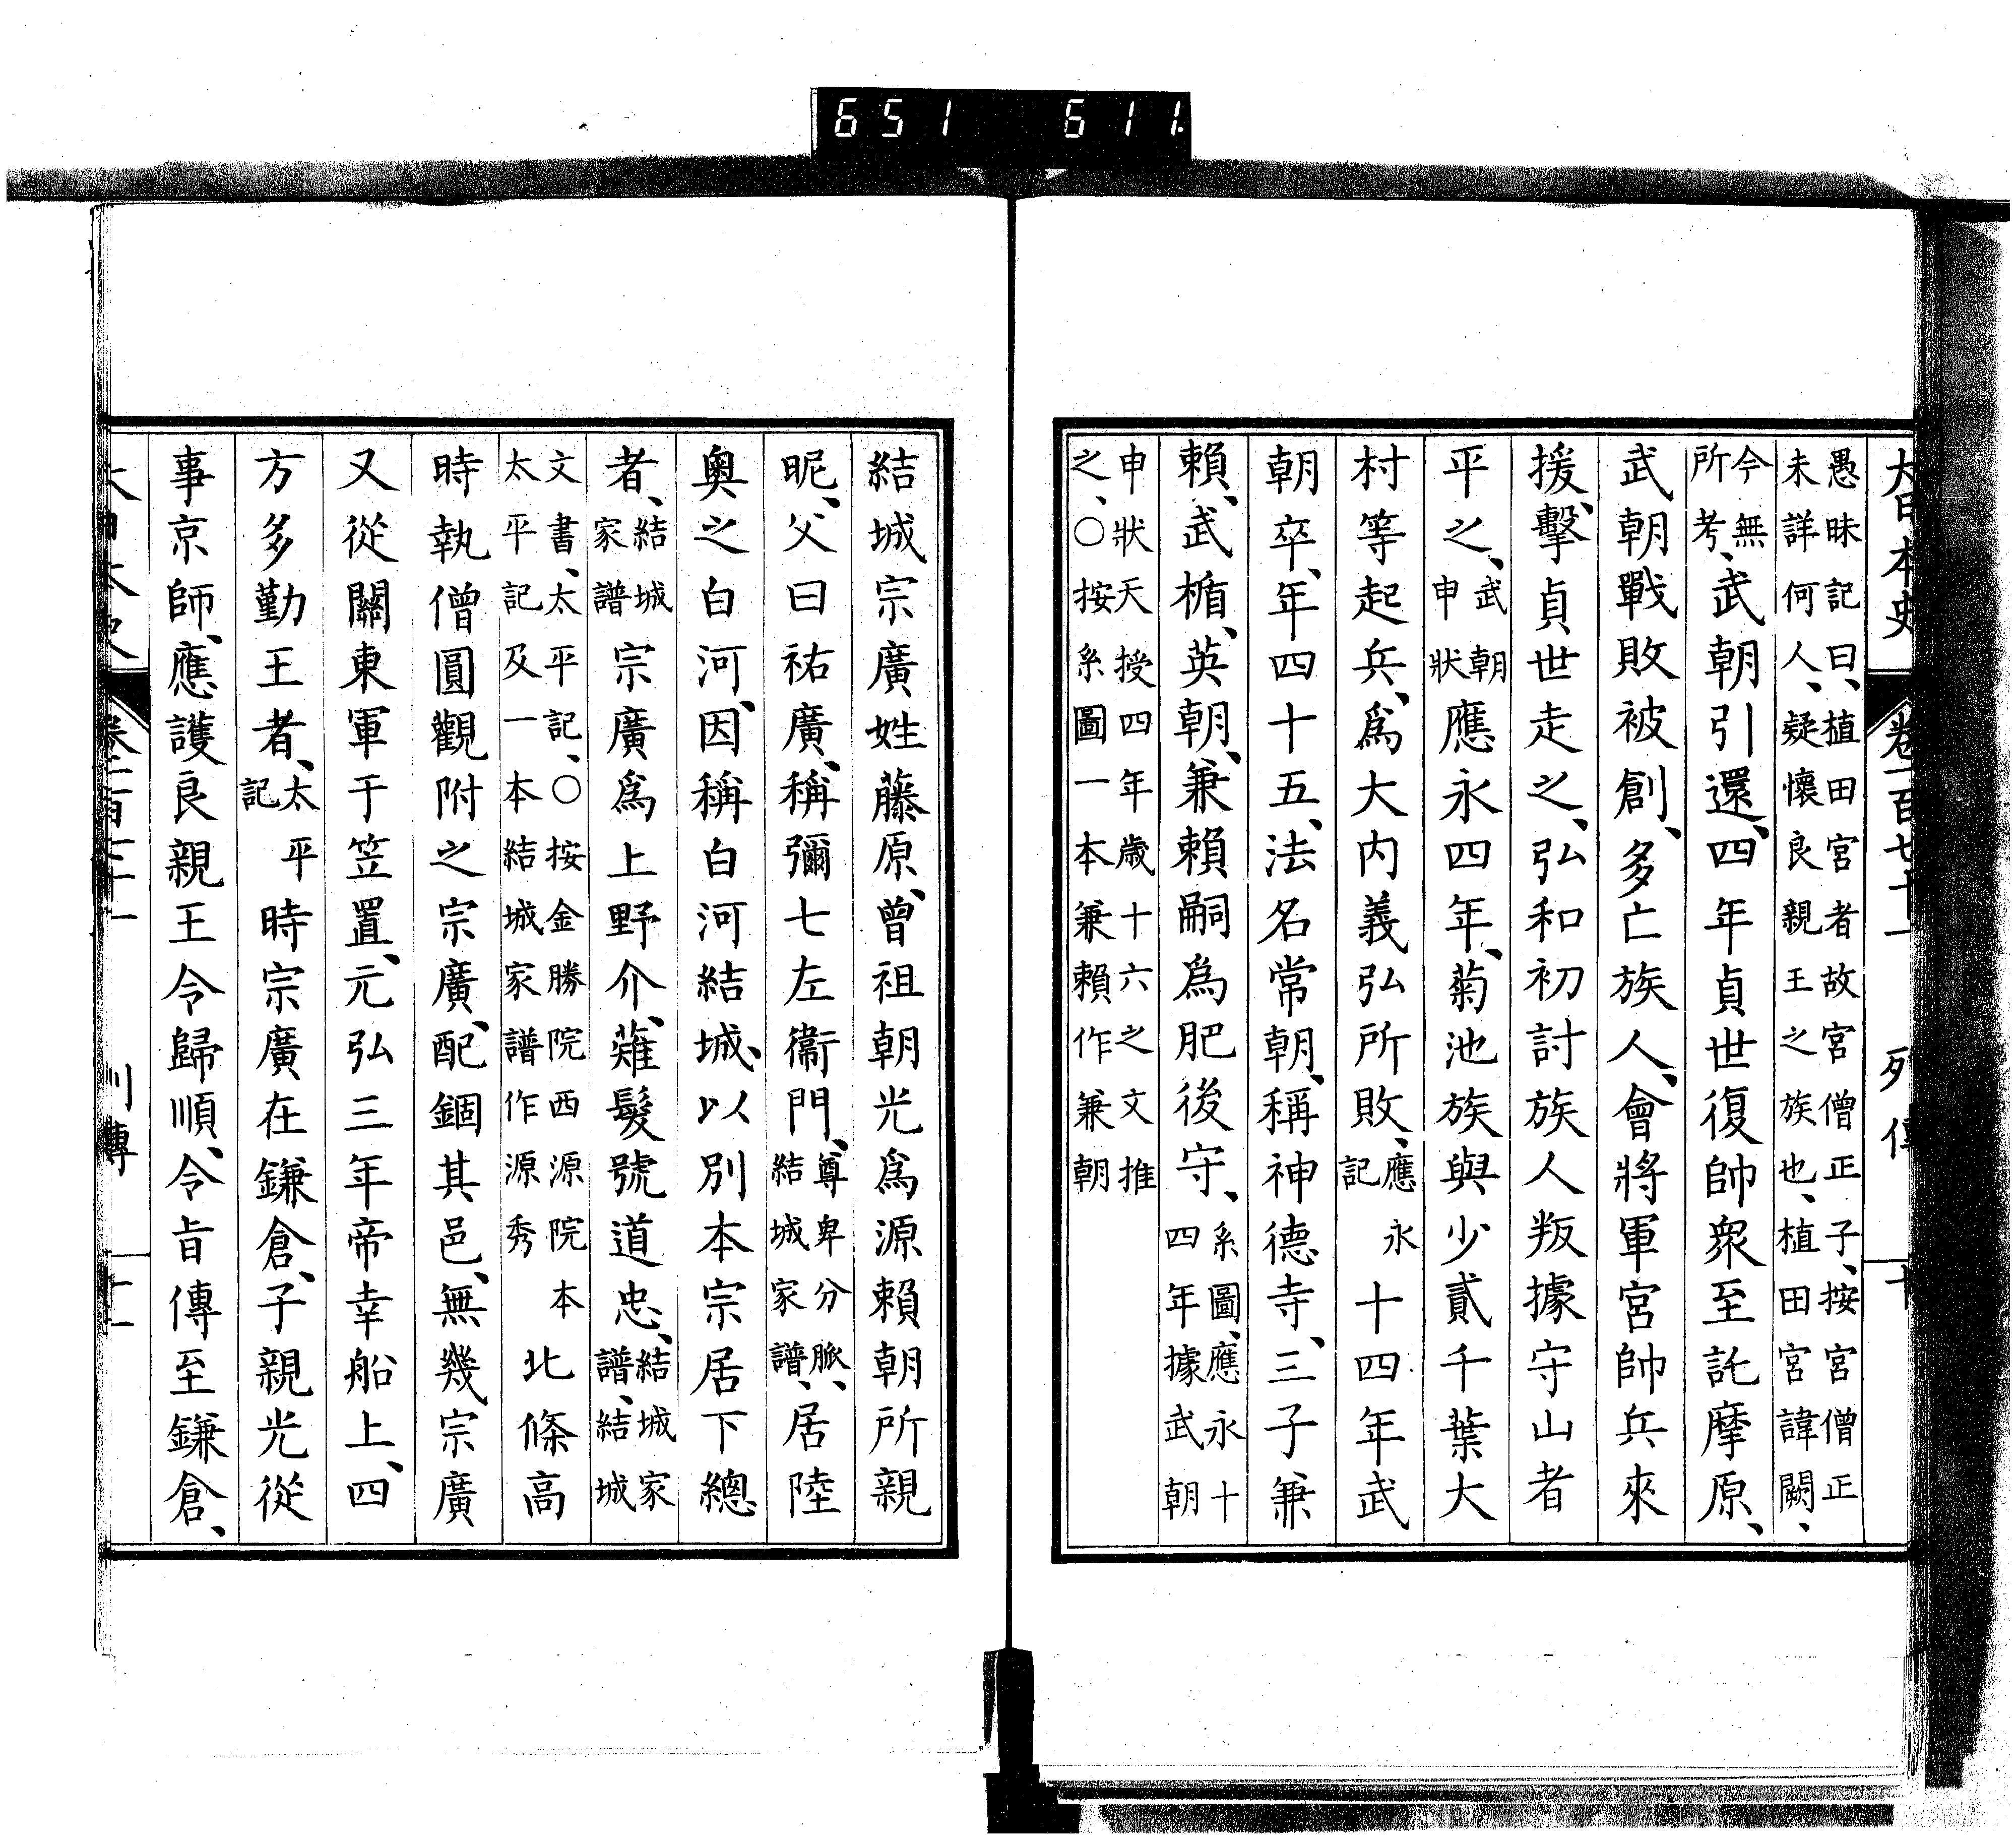 651 611
大日本史 卷一百七十一 列傳 十
愚昧記曰、植田宮者故宮僧正子、按宮僧正
未詳何人、疑懷良親王之族也、植田宮諱闕、
今無
所考、武朝引還、四年貞世復帥衆至託摩原、
武朝戰敗被創、多亡族人、會將軍宮帥兵來
援、擊貞世走之、弘和初討族人叛據守山者
平之、武朝申狀應永四年、菊池族與少貳千葉大
村等起兵、爲大內義弘所敗、應永記十四年武
朝卒、年四十五、法名常朝、稱神德寺、三子兼
賴、武楯、英朝、兼賴嗣爲肥後守、系圖、應永十四年據武朝
申狀天授四年歲十六之文推
之、○按系圖一本兼賴作兼朝
結城宗廣姓藤原、曾祖朝光爲源賴朝所親
昵、父曰祐廣、稱彌七左衞門、尊卑分脈、結城家譜、居陸
奧之白河、因稱白河結城、以別本宗居下總
者、結城家譜宗廣爲上野介、薙髮號道忠、結城家譜、結城
文書、太平記、○按金勝院西源院本
太平記及一本結城家譜作源秀
北條高
時執僧圓觀附之宗廣、配錮其邑、無幾宗廣
又從關東軍于笠置、元弘三年帝幸船上、四
方多勤王者、太平記時宗廣在鎌倉、子親光從
事京師、應護良親王令歸順、令旨傳至鎌倉、
大日本史 列傳 十一